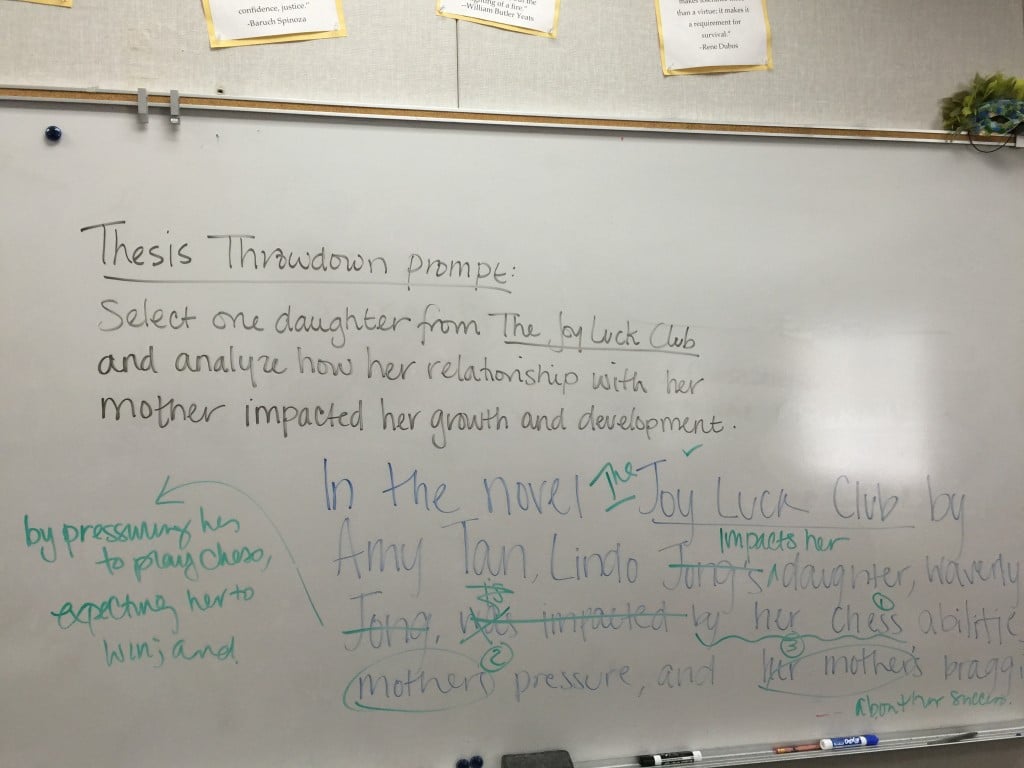 confidence, justice."
-Baruch Spinoza
of a fire."
~William Butler Yeats
than a virtue; it makes it
a requirement for
survival."
-Rene Dubos
Thesis Throwdown prompt:
Select one daughter from The Joy Luck Club
and analyze how her relationship with her
mother impacted her growth and development.
In the novel The Joy Luck Club by
Amy Tan, Lindo Jong's impacts her daughter, Waverly
Jong, was impacted by her chess 1 abilitie
mother's 2 pressure, and her 3 mother's braggi
about her success.
by pressuring her
to play chess,
expecting her to
win; and
Expo